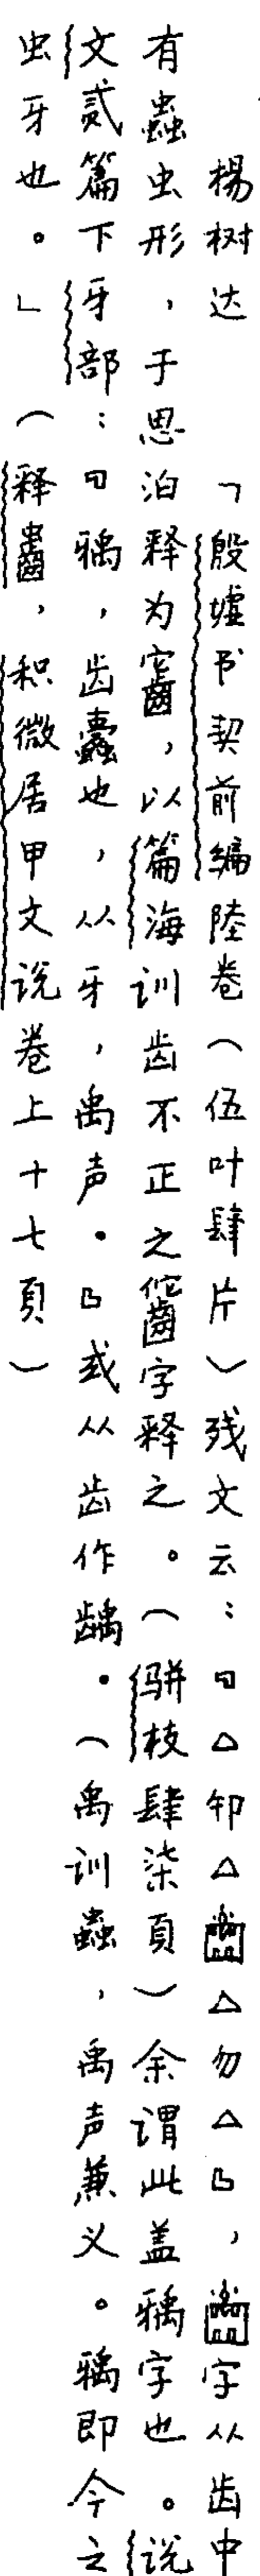 杨树达「殷墟书契前编陆卷(伍叶肆片)残文云:『△卸△△勿△』,字从齿中
有蟲虫形,于思泊释为,以篇海训齿不正之字释之。(骈枝肆柒頁)余谓此盖𤘐字也。说
文贰篇下牙部:『𤘐,齿蠹也,从牙,禹声。』或从齿作齲。(禹训蟲,禹声兼义。𤘐即今之
虫牙也。」(释,积微居甲文说卷上十七頁)